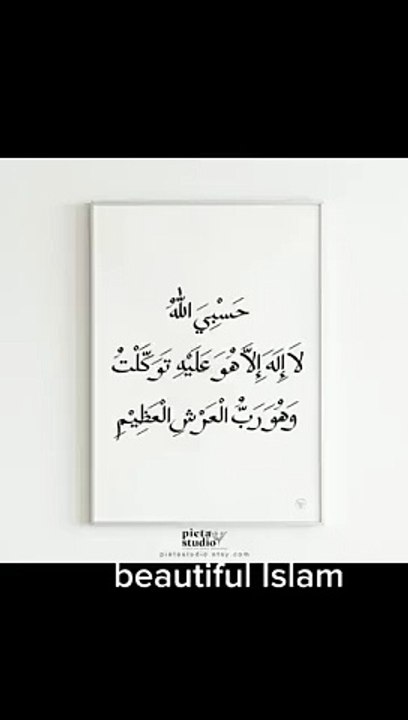 حَسْبِيَ اللهُ
لَا إِلَهَ إِلَّا هُوَ عَلَيْهِ تَوَكَّلْتُ
وَهُوَ رَبُّ الْعَرْشِ الْعَظِيْمِ
pieta
studio
pietastudio.etsy.com
beautiful Islam